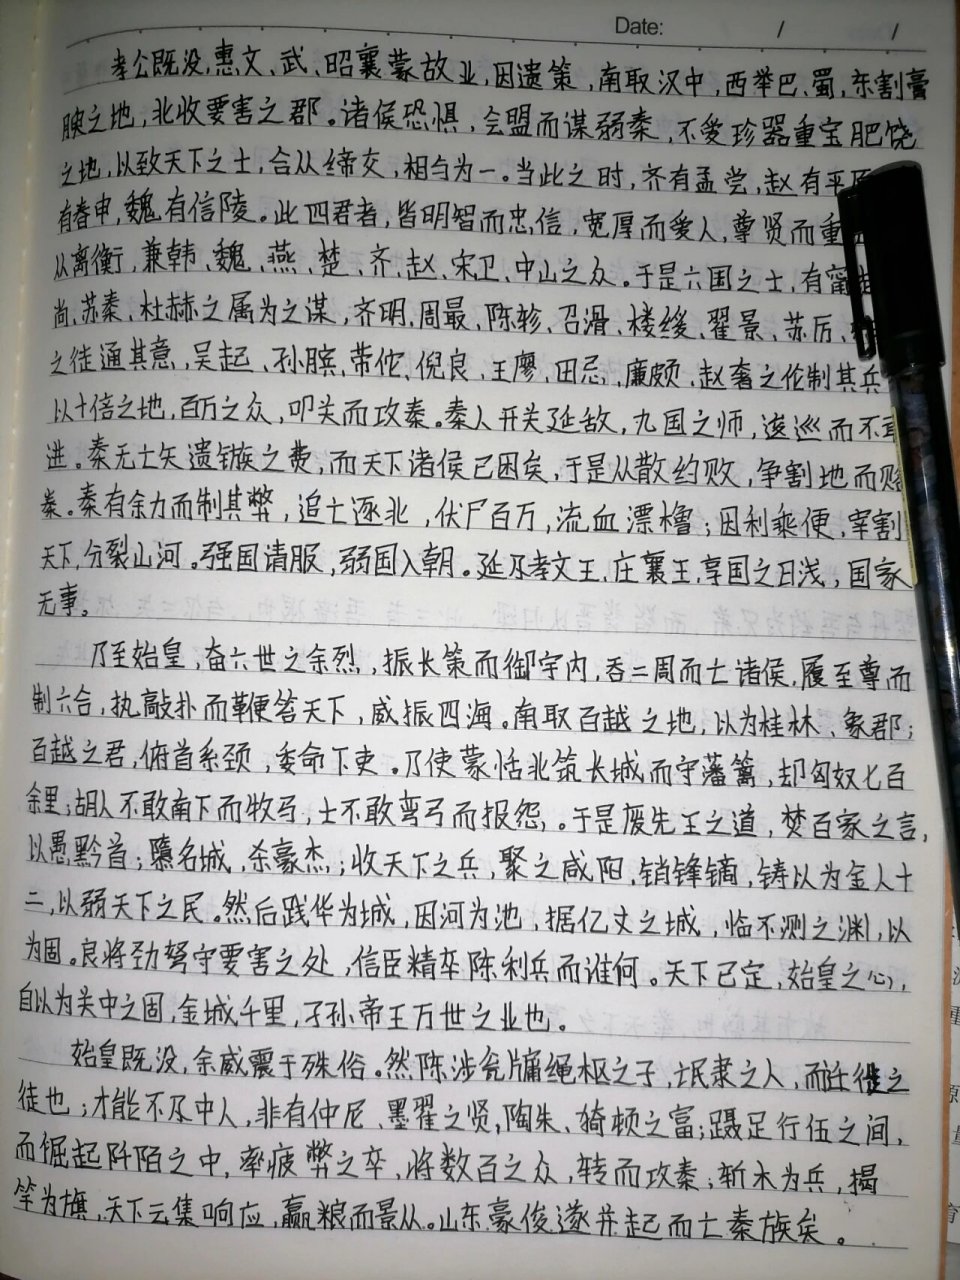 Date: / /
孝公既没,惠文、武、昭襄蒙故业,因遗策,南取汉中,西举巴、蜀,东割膏
腴之地,北收要害之郡。诸侯恐惧,会盟而谋弱秦,不爱珍器重宝肥饶
之地,以致天下之士,合从缔交,相与为一。当此之时,齐有孟尝,赵有平原
有春申,魏有信陵。此四君者,皆明智而忠信,宽厚而爱人,尊贤而重
从离衡,兼韩、魏、燕、楚、齐、赵、宋卫、中山之众。于是六国之士,有甯
尚、苏秦、杜赫之属为之谋,齐明、周最、陈轸、召滑、楼缓、翟景、苏厉、
之徒通其意,吴起、孙膑、带佗、倪良、王廖、田忌、廉颇、赵奢之伦制其兵
以十倍之地,百万之众,叩关而攻秦。秦人开关延敌,九国之师,逡巡而不敢
进。秦无亡矢遗镞之费,而天下诸侯已困矣,于是从散约败,争割地而赂
秦。秦有余力而制其弊,追亡逐北,伏尸百万,流血漂橹;因利乘便,宰割
天下,分裂山河。强国请服,弱国入朝。延及孝文王、庄襄王,享国之日浅,国家
无事。
乃至始皇,奋六世之余烈,振长策而御宇内,吞二周而亡诸侯,履至尊而
制六合,执敲扑而鞭笞天下,威振四海。南取百越之地,以为桂林、象郡;
百越之君,俯首系颈,委命下吏。乃使蒙恬北筑长城而守藩篱,却匈奴七百
余里;胡人不敢南下而牧马,士不敢弯弓而报怨。于是废先王之道,焚百家之言,
以愚黔首;隳名城,杀豪杰;收天下之兵,聚之咸阳,销锋镝,铸以为金人十
二,以弱天下之民。然后践华为城,因河为池,据亿丈之城,临不测之渊,以
为固。良将劲弩守要害之处,信臣精卒陈利兵而谁何。天下已定,始皇之心,
自以为关中之固,金城千里,子孙帝王万世之业也。
始皇既没,余威震于殊俗。然陈涉瓮牖绳枢之子,氓隶之人,而迁徙之
徒也;才能不及中人,非有仲尼、墨翟之贤,陶朱、猗顿之富;蹑足行伍之间,
而倔起阡陌之中,率疲弊之卒,将数百之众,转而攻秦;斩木为兵,揭
竿为旗,天下云集响应,赢粮而景从。山东豪俊遂并起而亡秦族矣。